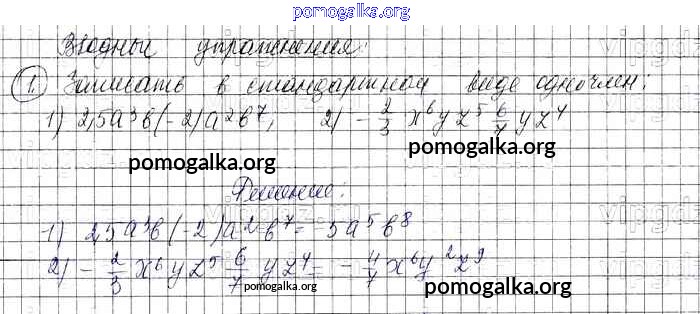 pomogalka.org
Вводные упражнения:
1. Записать в стандартном виде одночлен:
1) 2,5a³b(-2)a²b⁷; 2) -2/3 x⁶yz⁵ 6/7 yz⁴
pomogalka.org pomogalka.org
Решение:
1) 2,5a³b(-2)a²b⁷ = -5a⁵b⁸
2) -2/3 x⁶yz⁵ 6/7 yz⁴ = -4/7 x⁶y²z⁹
pomogalka.org pomogalka.org